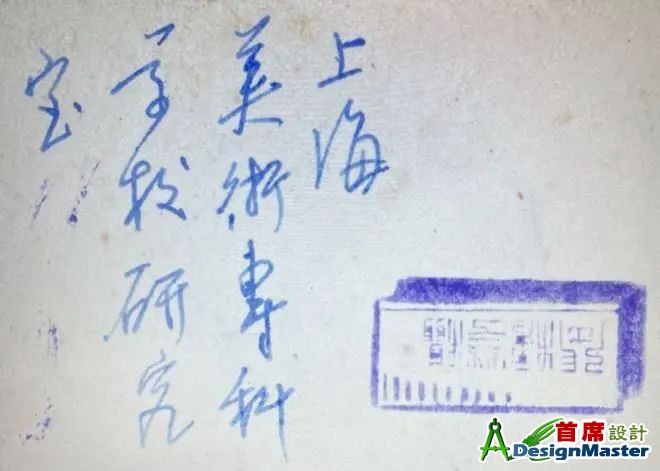 上海
美術專科
学校研究
室
首席設計
ADesignMaster